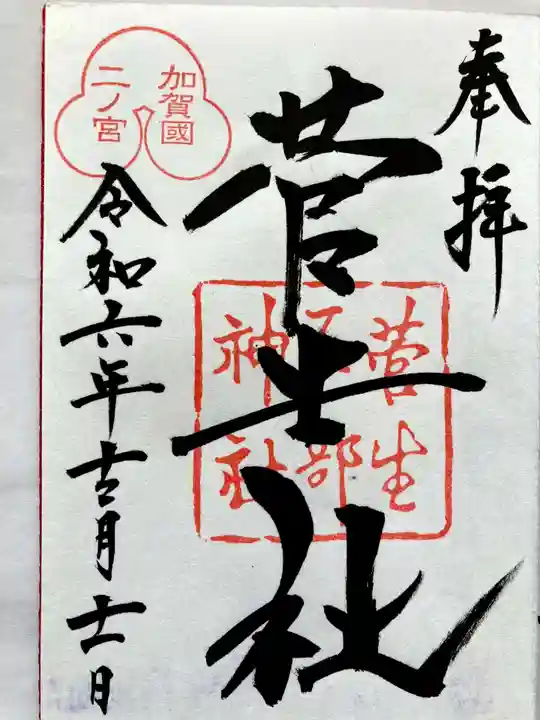 奉拝
菅生社
菅生
石部
神社
加賀國
二ノ宮
令和六年